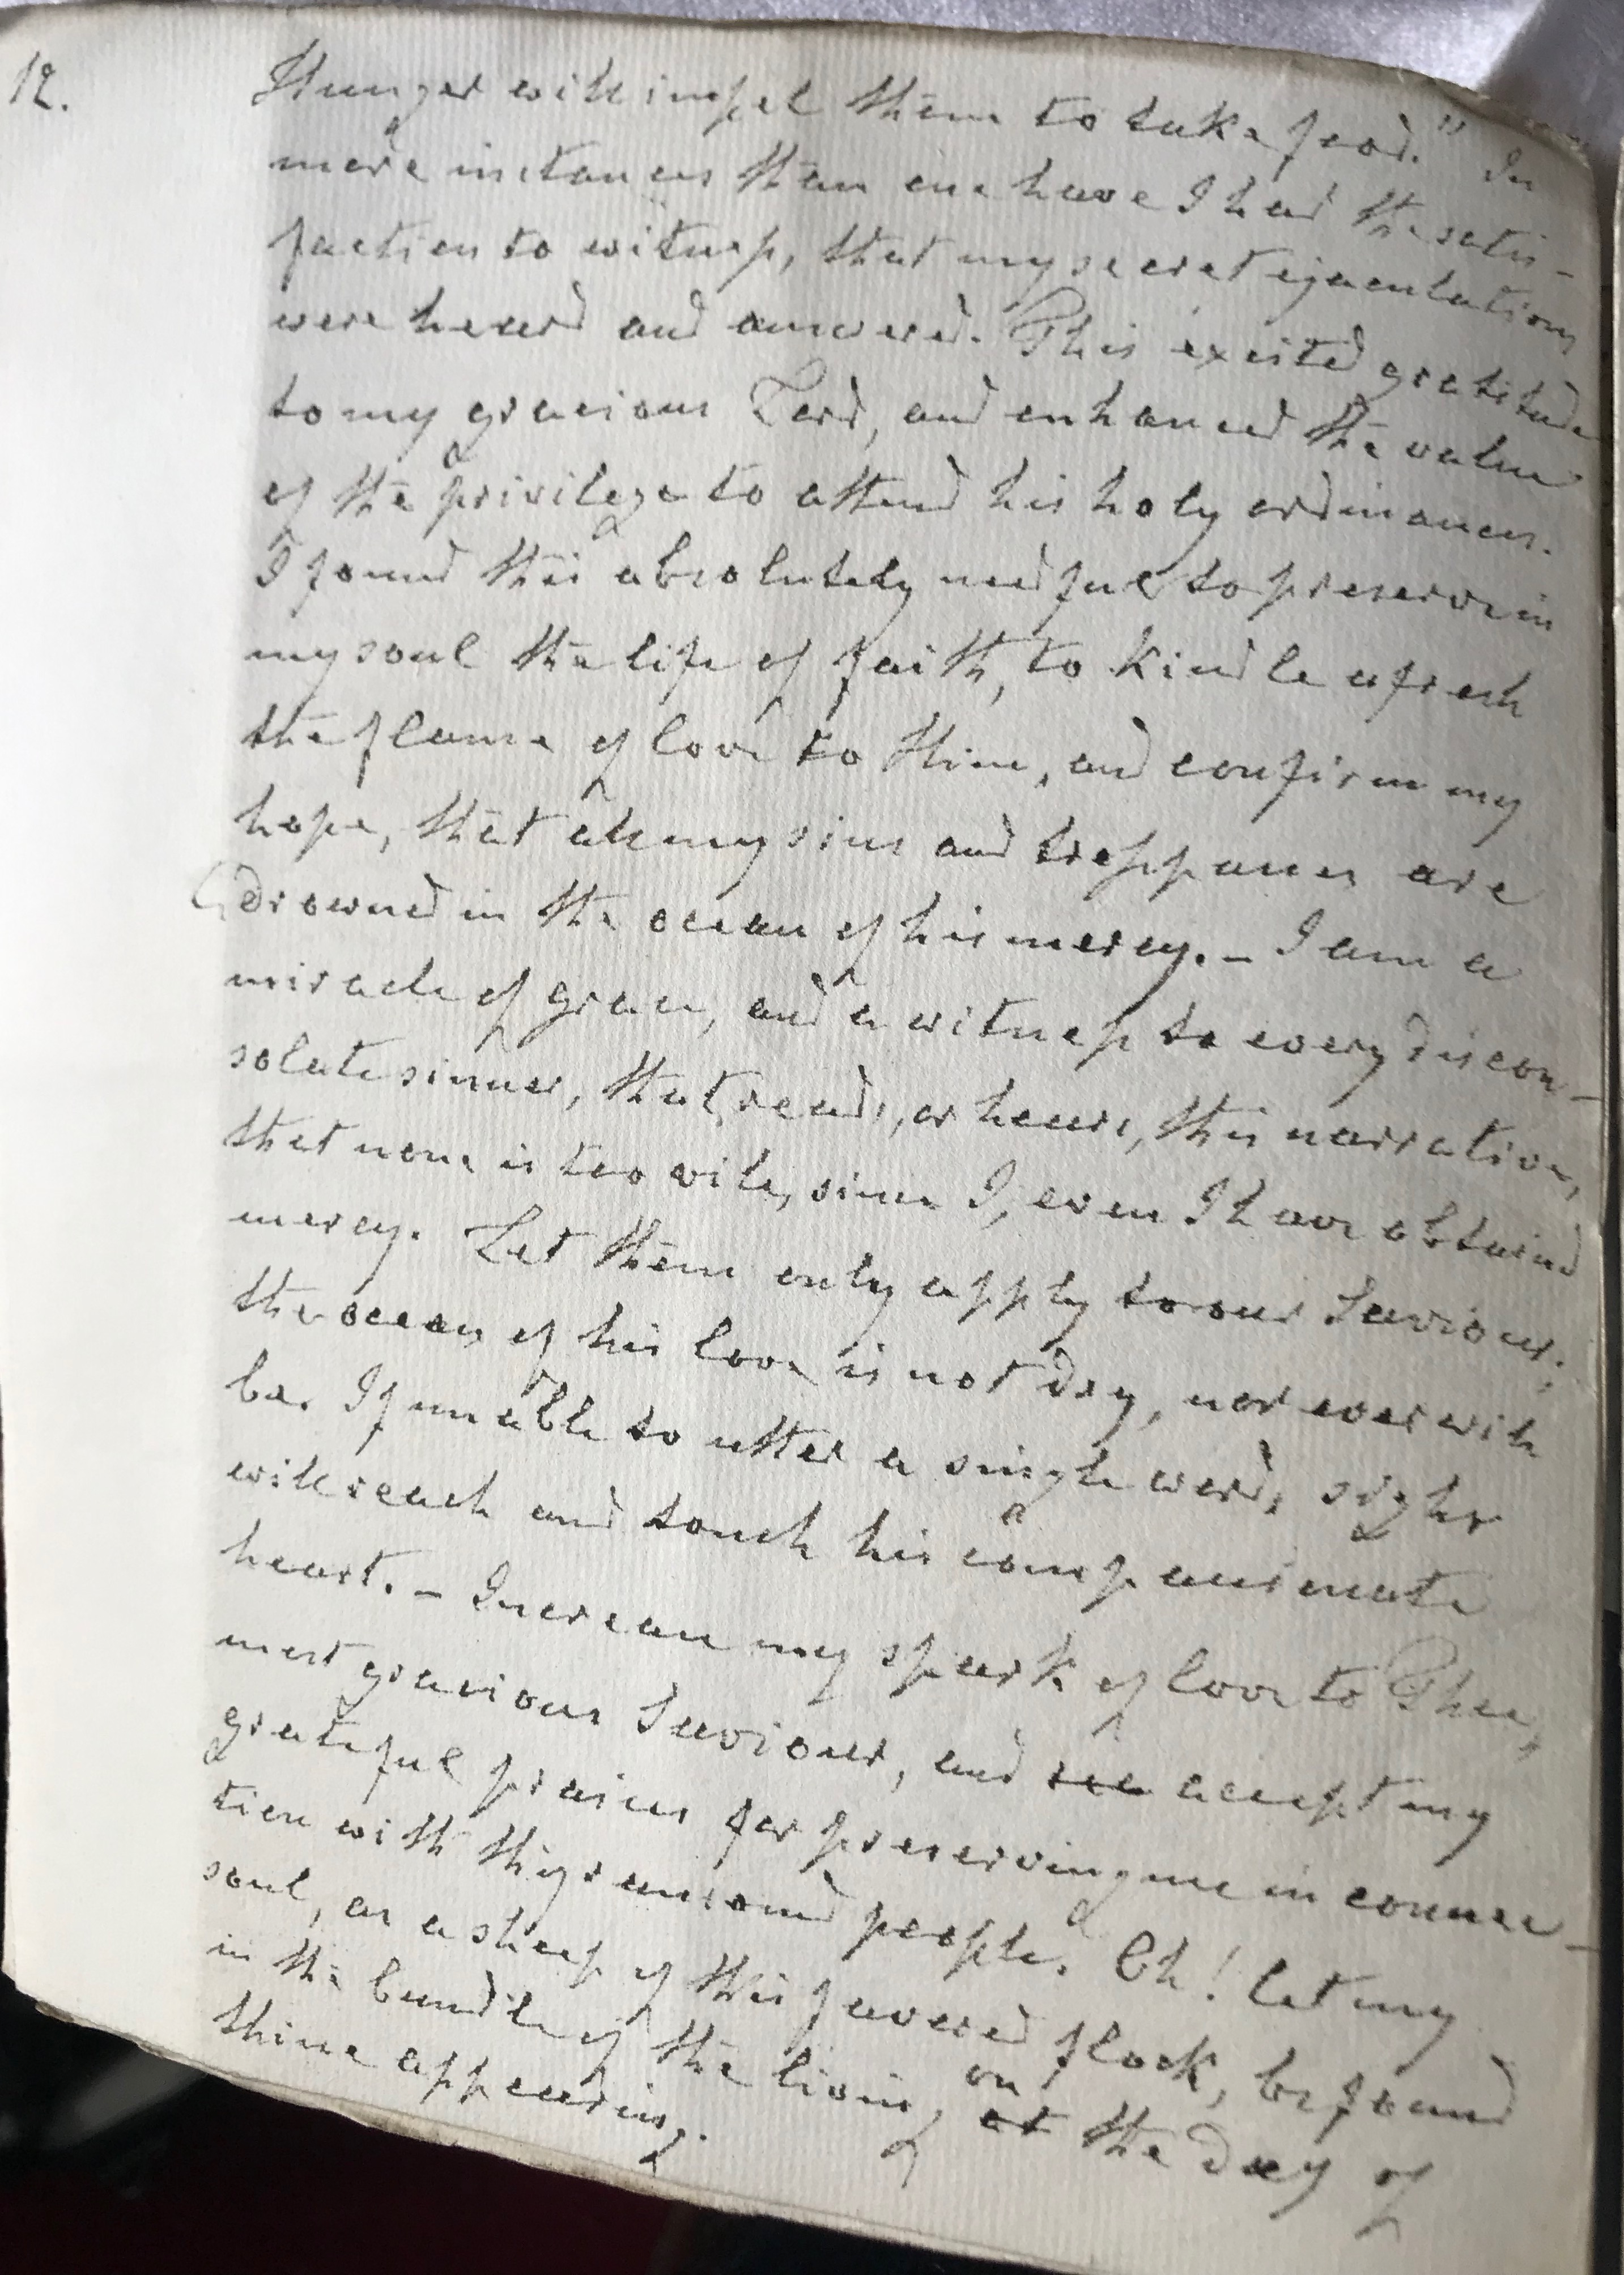 12.
Hunger will impel them to take food." In
more instances than one have I had the satis-
faction to witness, that my secret ejaculations
were heard and answered. This excited gratitude
to my gracious Lord, and enhanced the value
of the privilege to attend his holy ordinances.
I found this absolutely needful to preserve in
my soul the life of faith, to kindle afresh
the flame of love to Him, and confirm my
hope, that all my sins and trespasses are
drowned in the ocean of his mercy. – I am a
miracle of grace, and a witness to every discon-
solate sinner, that reads, or hears, this narrative,
that none is too vile, since I, even I have obtained
mercy. Let them only apply to our Saviour;
the ocean of his love is not dry, nor ever will
be. If unable to utter a single word, sighs
will reach and touch his compassionate
heart. – Increase my spark of love to Thee,
most gracious Saviour, and accept my
grateful praises for preserving me in connec-
tion with thy ransomed people. Oh! let my
soul, as a sheep of this favored flock, be found
in the bundle of the living on at the day of
thine appearing.